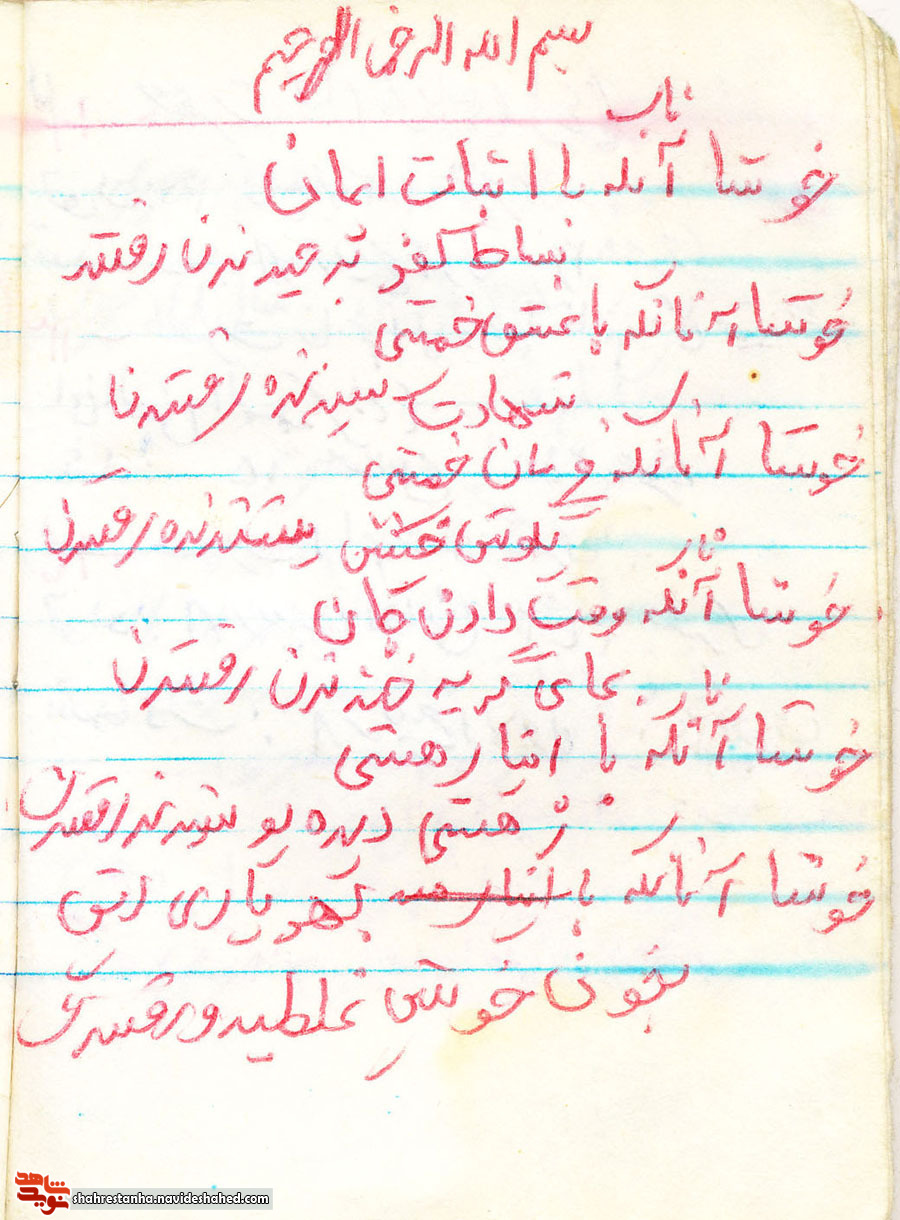 بسم الله الرحمن الرحیم
ناب
خوشا آنکه با اثبات ایمان
بساط کفر بر چیدند و رفتند
خوشا آنانکه با عشق خمینی
شهادت رفتند
خوشا آنانکه فرمان خمینی
بگوش رفتند
نا
خوشا آنکه وقت دادن جان
نا بجای گریه خندیدن رفتند
خوشا آنکه با ایثار هستی
ز هستی دیده پوشیدند رفتند
خوشا آنانکه با بهر یاری
بخون خویش غلطید و رفتند
شاهد
نوید
shahrestanha.navideshahed.com